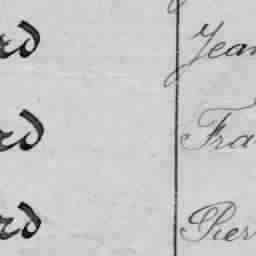 rd Jean
rd Fra
rd Pier